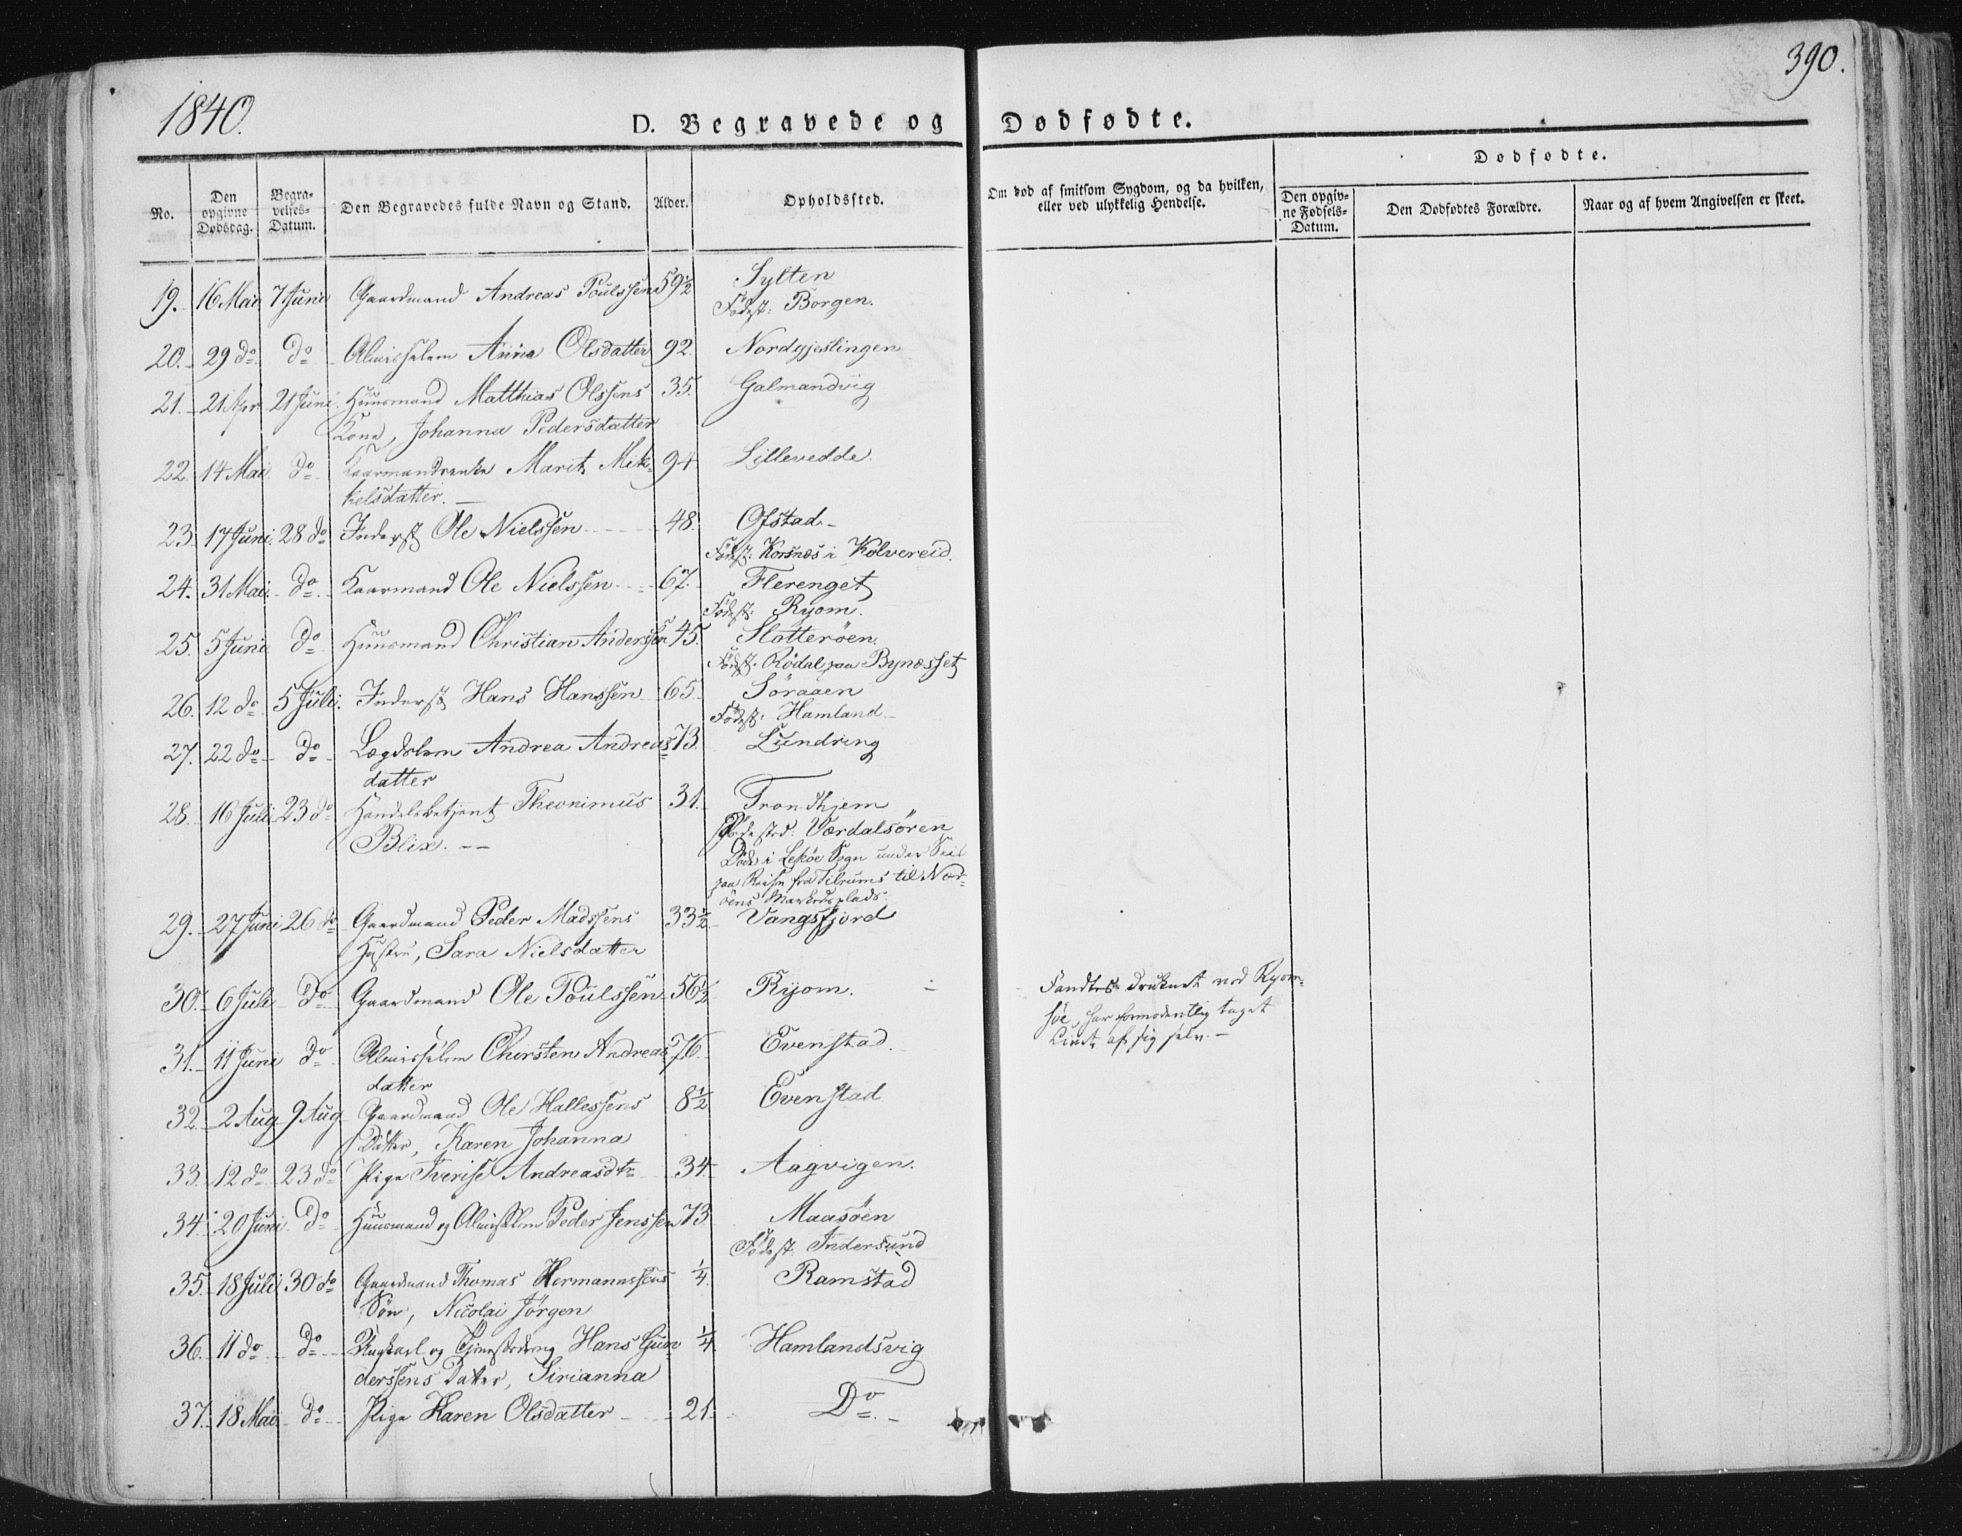 390.
1840.
D. Begravede og Dødfødte.
Dødfødte.
No.
Den opgivne Dødsdag.
Begravelses-Datum.
Den Begravedes fulde Navn og Stand.
Alder.
Opholdssted.
Om død af smitsom Sygdom, og da hvilken,
eller ved ulykkelig Hendelse.
Den opgivne Fødsels-Datum.
Den Dødfødtes Forældre.
Naar og af hvem Angivelsen er skeet.
19. 16 Mai 7 Juni Gaardmand Andreas Poulssen 59½ Sylten
Fødest: Borgen.
20. 29 do do Almisselem Anna Olsdatter 92. Nordgjeslingen
21. 21 Apr. 21 Juni Huusmand Matthias Olssens 35. Galmandvig
Kone, Johanna Pedersdatter
22. 14 Mai do Kaarmandsenke Marit Mik- 94 Lillevedde.
kelsdatter. —
23. 17 Juni 28 do Inderst Ole Nielssen 48. Ofstad.
Fødest: Korsnæs i Kolvereid.
24. 31 Mai do Kaarmand Ole Nielssen 67. Flerenget
Fødest: Ryom.
25. 5 Juni do Huusmand Christian Anderssen 45. Slotterøen
Fødest: Rødal paa Bynæsset
26. 12 do 5 Juli. Inderst Hans Hanssen 65. Søraaen
Fødest: Hamland
27. 22 do do Lægdslem Andrea Andreas- 73. Lundring
datter
28. 16 Juli 23 do Handelsbetjent Theonimus 31. Trondhjem
Blix. -- Fødested: Værdalsøren
Døde i Lekøe Sogn under Seil
paa Reise fra Tilrums til Nor-
öens Markedsplads
29. 27 Juni 26 do Gaardmand Peder Madssens 33½ Vangsfjord
Hustru, Sara Nielsdatter
30. 6 Juli do Gaardmand Ole Poulssen 56½ Ryom. Fandtes druknet ved Ryom-
søe, har formodentlig taget
Livet af sig selv. —
31. 11 Juni do Almisselem Chirsten Andreas- 76. Evenstad.
datter
32. 2 Aug 9 Aug Gaardmand Ole Hallessens 8½ Evenstad
Datter, Karen Johanna
33. 12 do 23 do Pige Iverise Andreasdtr 34. Aagvigen.
34. 20 Juni do Huusmand og Almisselem Peder Jenssen 73 Maasøen
Fødest: Indersund
35. 18 Juli 30 do Gaardmand Thomas Hermanssens ¼. Ramstad
Søn, Nicolai Jørgen
36. 11 do do Ungkarl og Tjenestedreng Hans Gun- ¼ Hamlandsvig
derssens Datter, Sirianna
37. 18 Mai do Pige Karen Olsdatter 21. Do